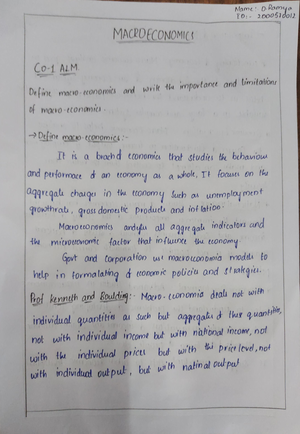 Name: D Ramya
ID:- 2000520012
MACROECONOMICS
CO-1 ALM
Define macro-economics and write the importance and limitations
of macro-economics.
→ Define macro-economics:-
It is a branch of economics that studies the behaviour
and performace of an economy as a whole. It focus on the
aggregate changes in the economy such as unemployment
growthrate, gross domestic products and inflation.
Macroeconomics analyses all aggregate indicators and
the microeconomic factor that influence the economy.
Govt and corporation use macroeconomics models to
help in formalating of economic policies and strategies.
Prof Kenneth and Boulding:- Macro-economia deals not with
individual quantities as such but aggregates of these quantities,
not with individual income but with national income, not
with the individual prices but with the price level, not
with individual output, but with natinal output